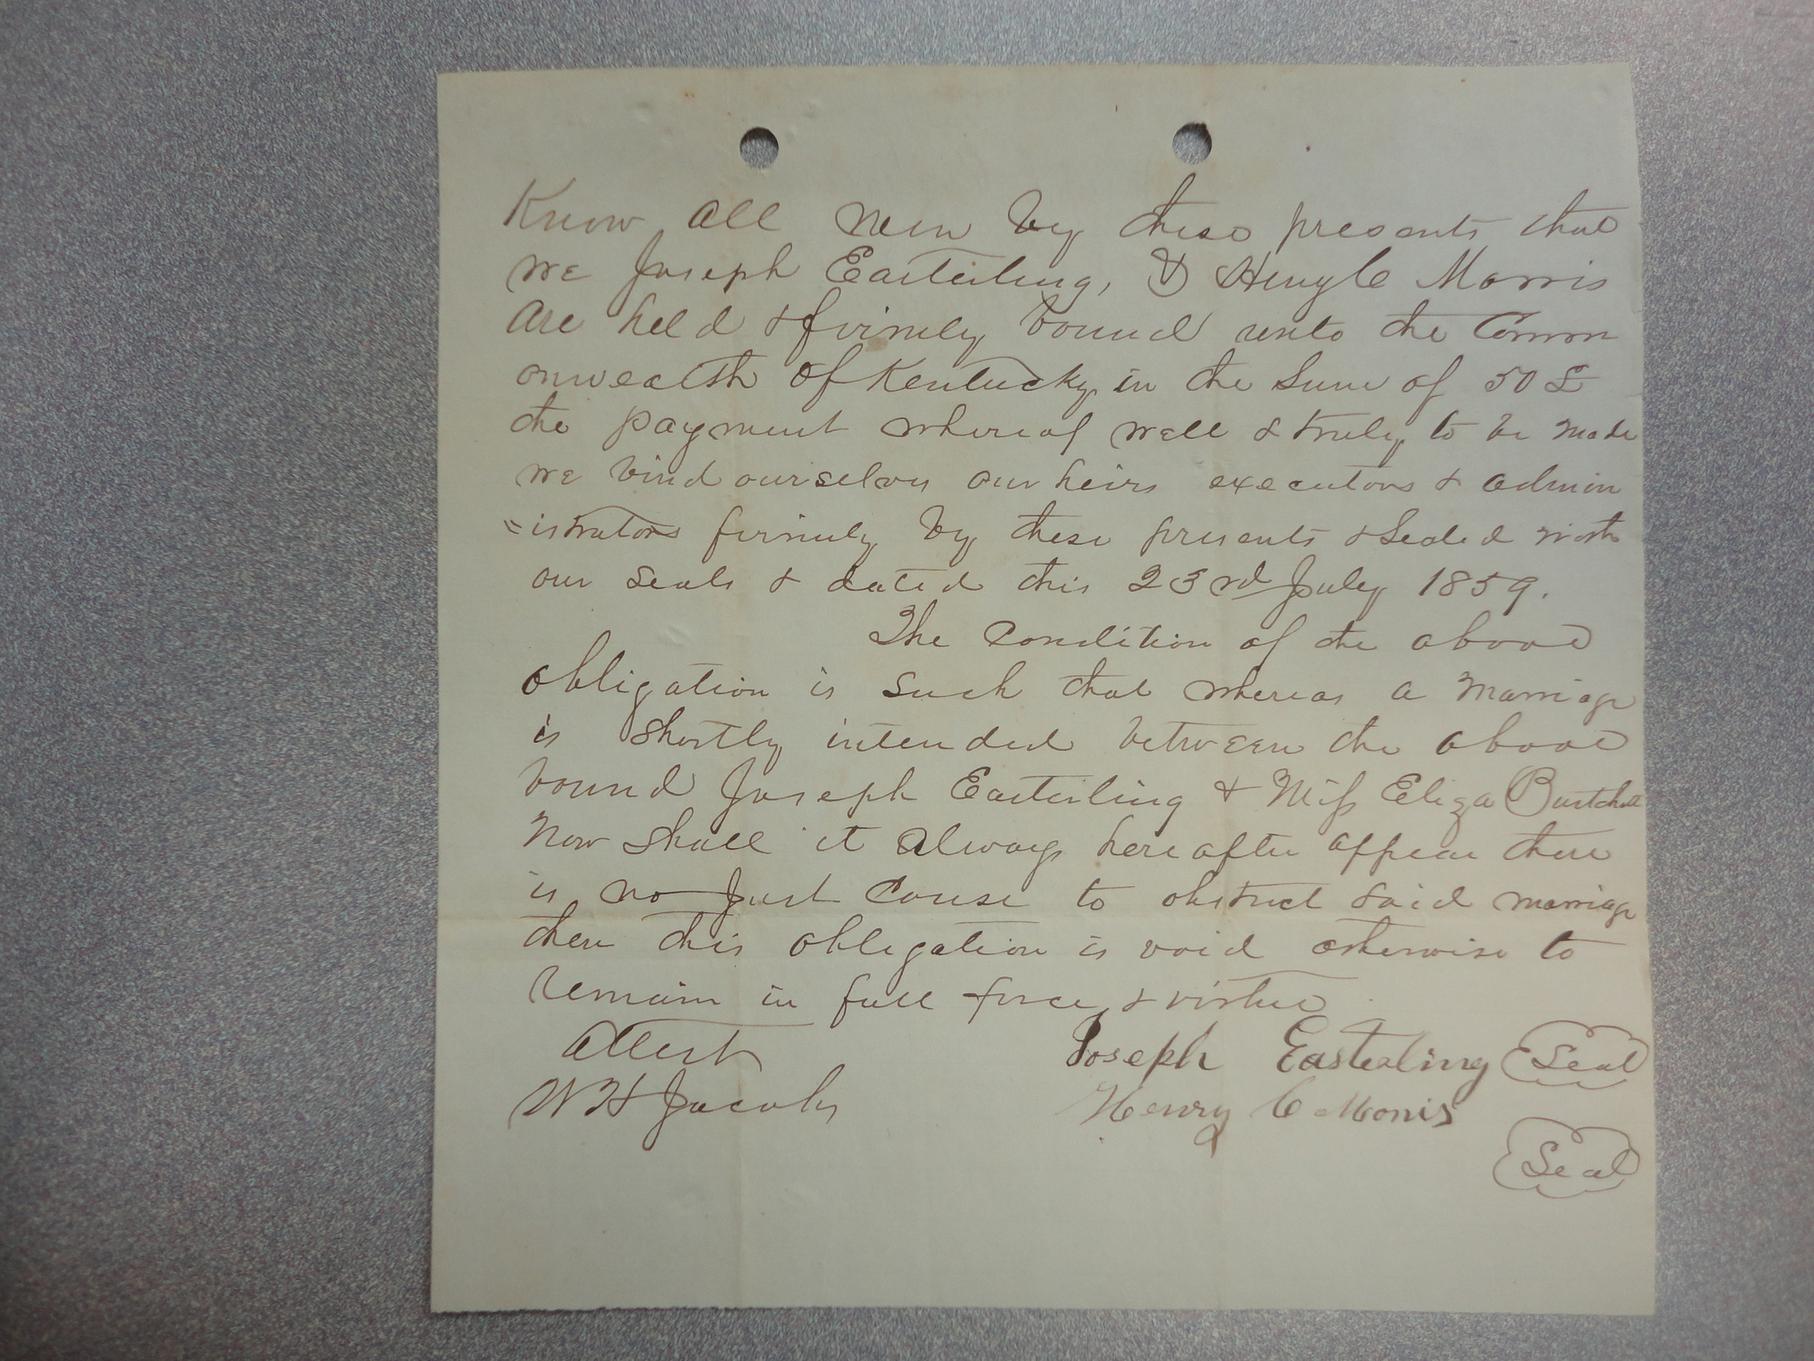 Know all men by these presents that
we Joseph Easterling, & Henry C Morris
are held & firmly bound unto the Comm
onwealth of Kentucky in the Sum of 50 £
the payment whereof well & truly to be made
we bind ourselves our heirs executors & admin
=istrators firmly by these presents & Sealed with
our Seals & dated this 23rd July 1859.
The Condition of the above
obligation is Such that whereas a Marriage
is Shortly intended between the above
bound Joseph Easterling & Miss Eliza
Now Shall it always hereafter appear there
is no Just Cause to obstruct Said marriage
then this obligation is void otherwise to
remain in full force & virtue
Attest Joseph Easterling Seal
W H Jacobs Henry C Morris
Seal